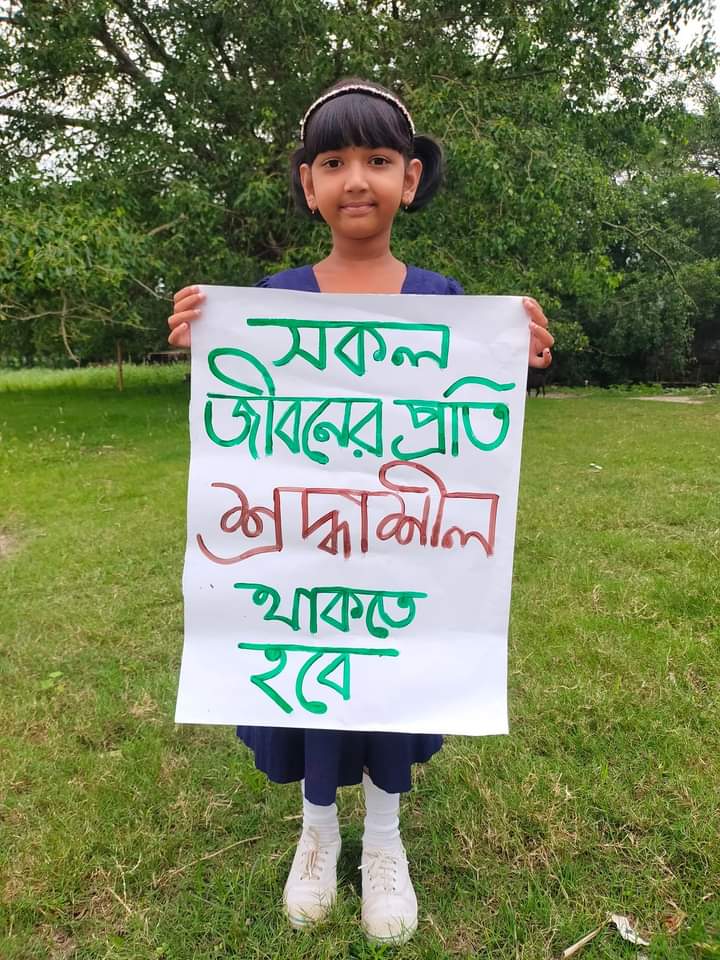 সকল
জীবনের প্রতি
শ্রদ্ধাশীল
থাকতে
হবে